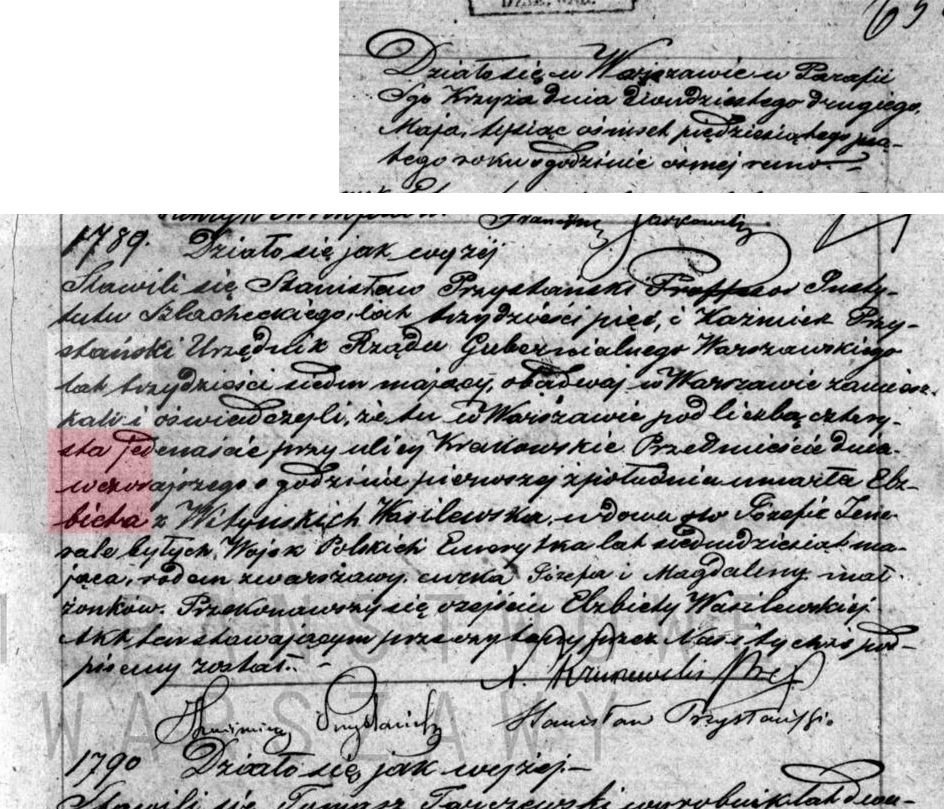 DZIE. WAR.
Działo się w Warszawie w Parafii
Sgo Krzyża dnia dwudziestego drugiego
Maja, tysiąc ośmset pięćdziesiątego pią-
tego roku o godzinie ósmej rano.
1789. Działo się jak wyżej
Stawili się Stanisław Przystański Professor Insty-
tutu Szlacheckiego, lat trzydzieści pięć, i Kaźmierz Przy-
stański Urzędnik Rządu Gubernialnego Warszawskiego
lat trzydzieści siedm mający, obadwaj w Warszawie zamiesz-
kali i oświadczyli, że tu w Warszawie pod liczbą cztery-
sta jedenaście przy ulicy Krakowskie Przedmieście dnia
wczorajszego o godzinie pierwszej z południa umarła Elż-
bieta z Wityńskich Wasilewska, wdowa po Józefie Jene-
rale byłych Wojsk Polskich Emerytka lat siedmdziesiąt ma-
jąca, rodem z Warszawy, córka Józefa i Magdaleny mał-
żonków. Przekonawszy się o zejściu Elżbiety Wasilewskiej
Akt ten stawającym przeczytany przez Nas i tychże pod-
pisany został. -
Kaźmierz Przystański Stanisław Przystański
PAŃSTWOWE
WARSZAWY
1790 Działo się jak wyżej -
Stawili się Tomasz Tarczewski wyrobnik lat dwa-